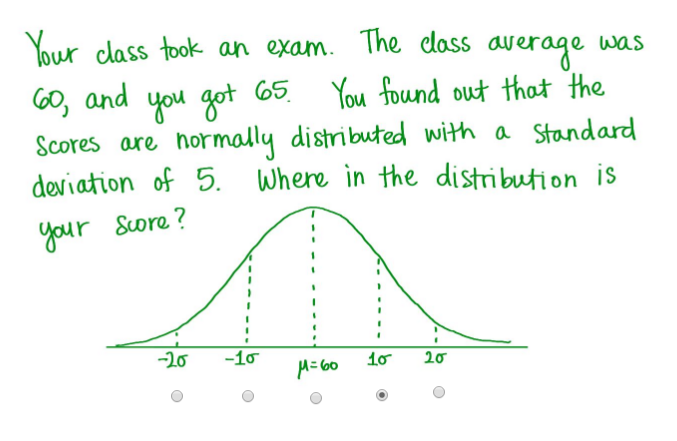 Your class took an exam. The class average was
60, and you got 65. You found out that the
Scores are normally distributed with a Standard
deviation of 5. Where in the distribution is
your Score?
-2σ -1σ μ=60 1σ 2σ